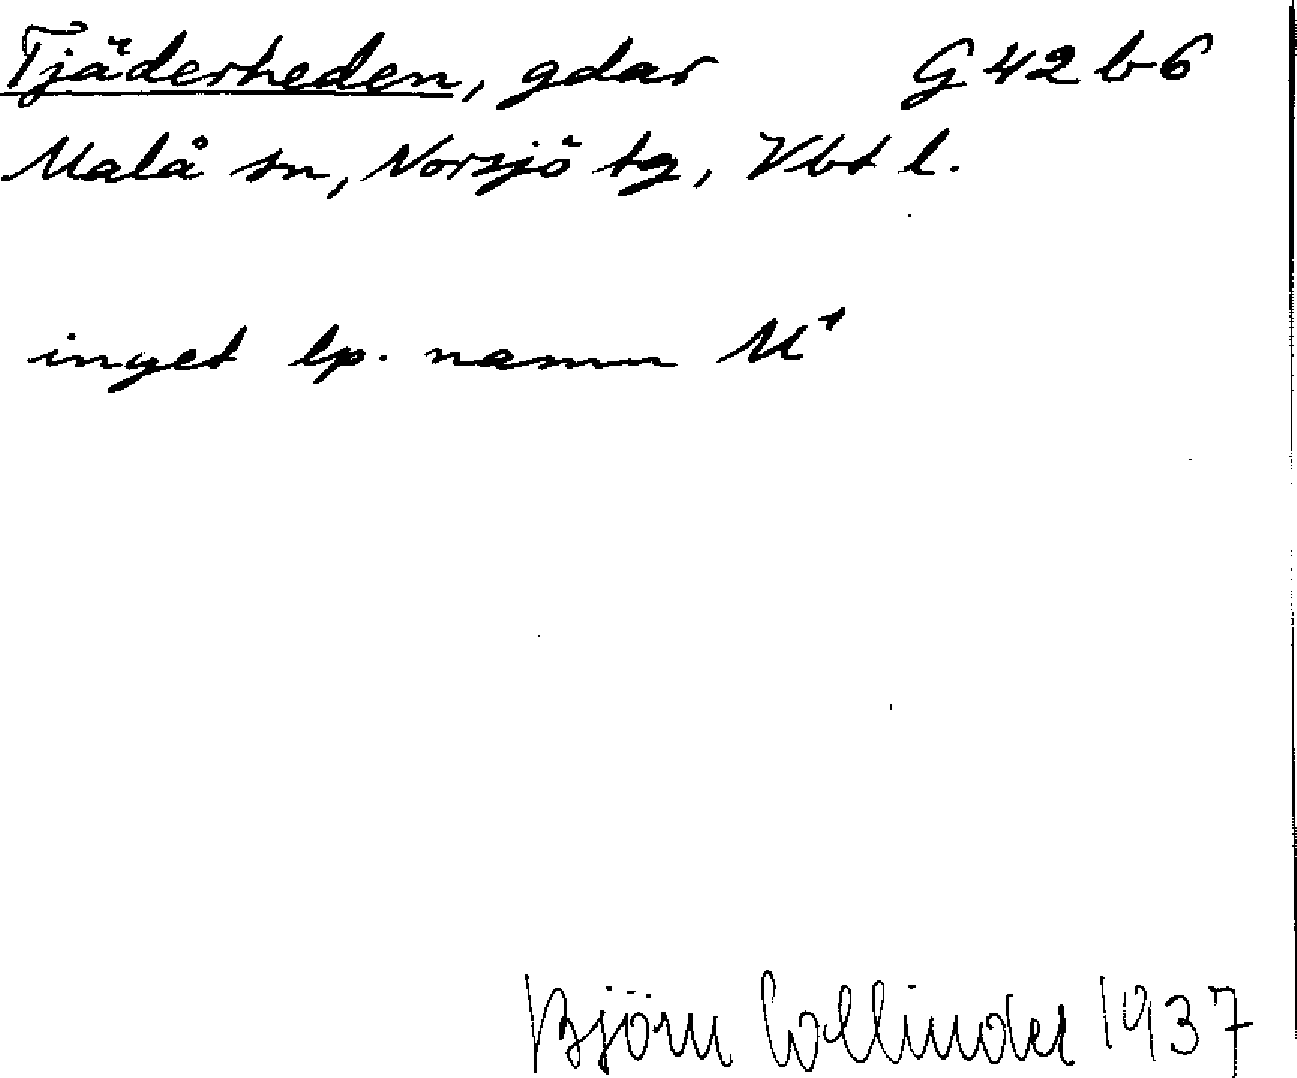 Tjäderheden, gdar G 42 b 6
Malå sn, Norsjö tg, Vbt l.
inget lp. namn M¹
Björn Collinder 1937